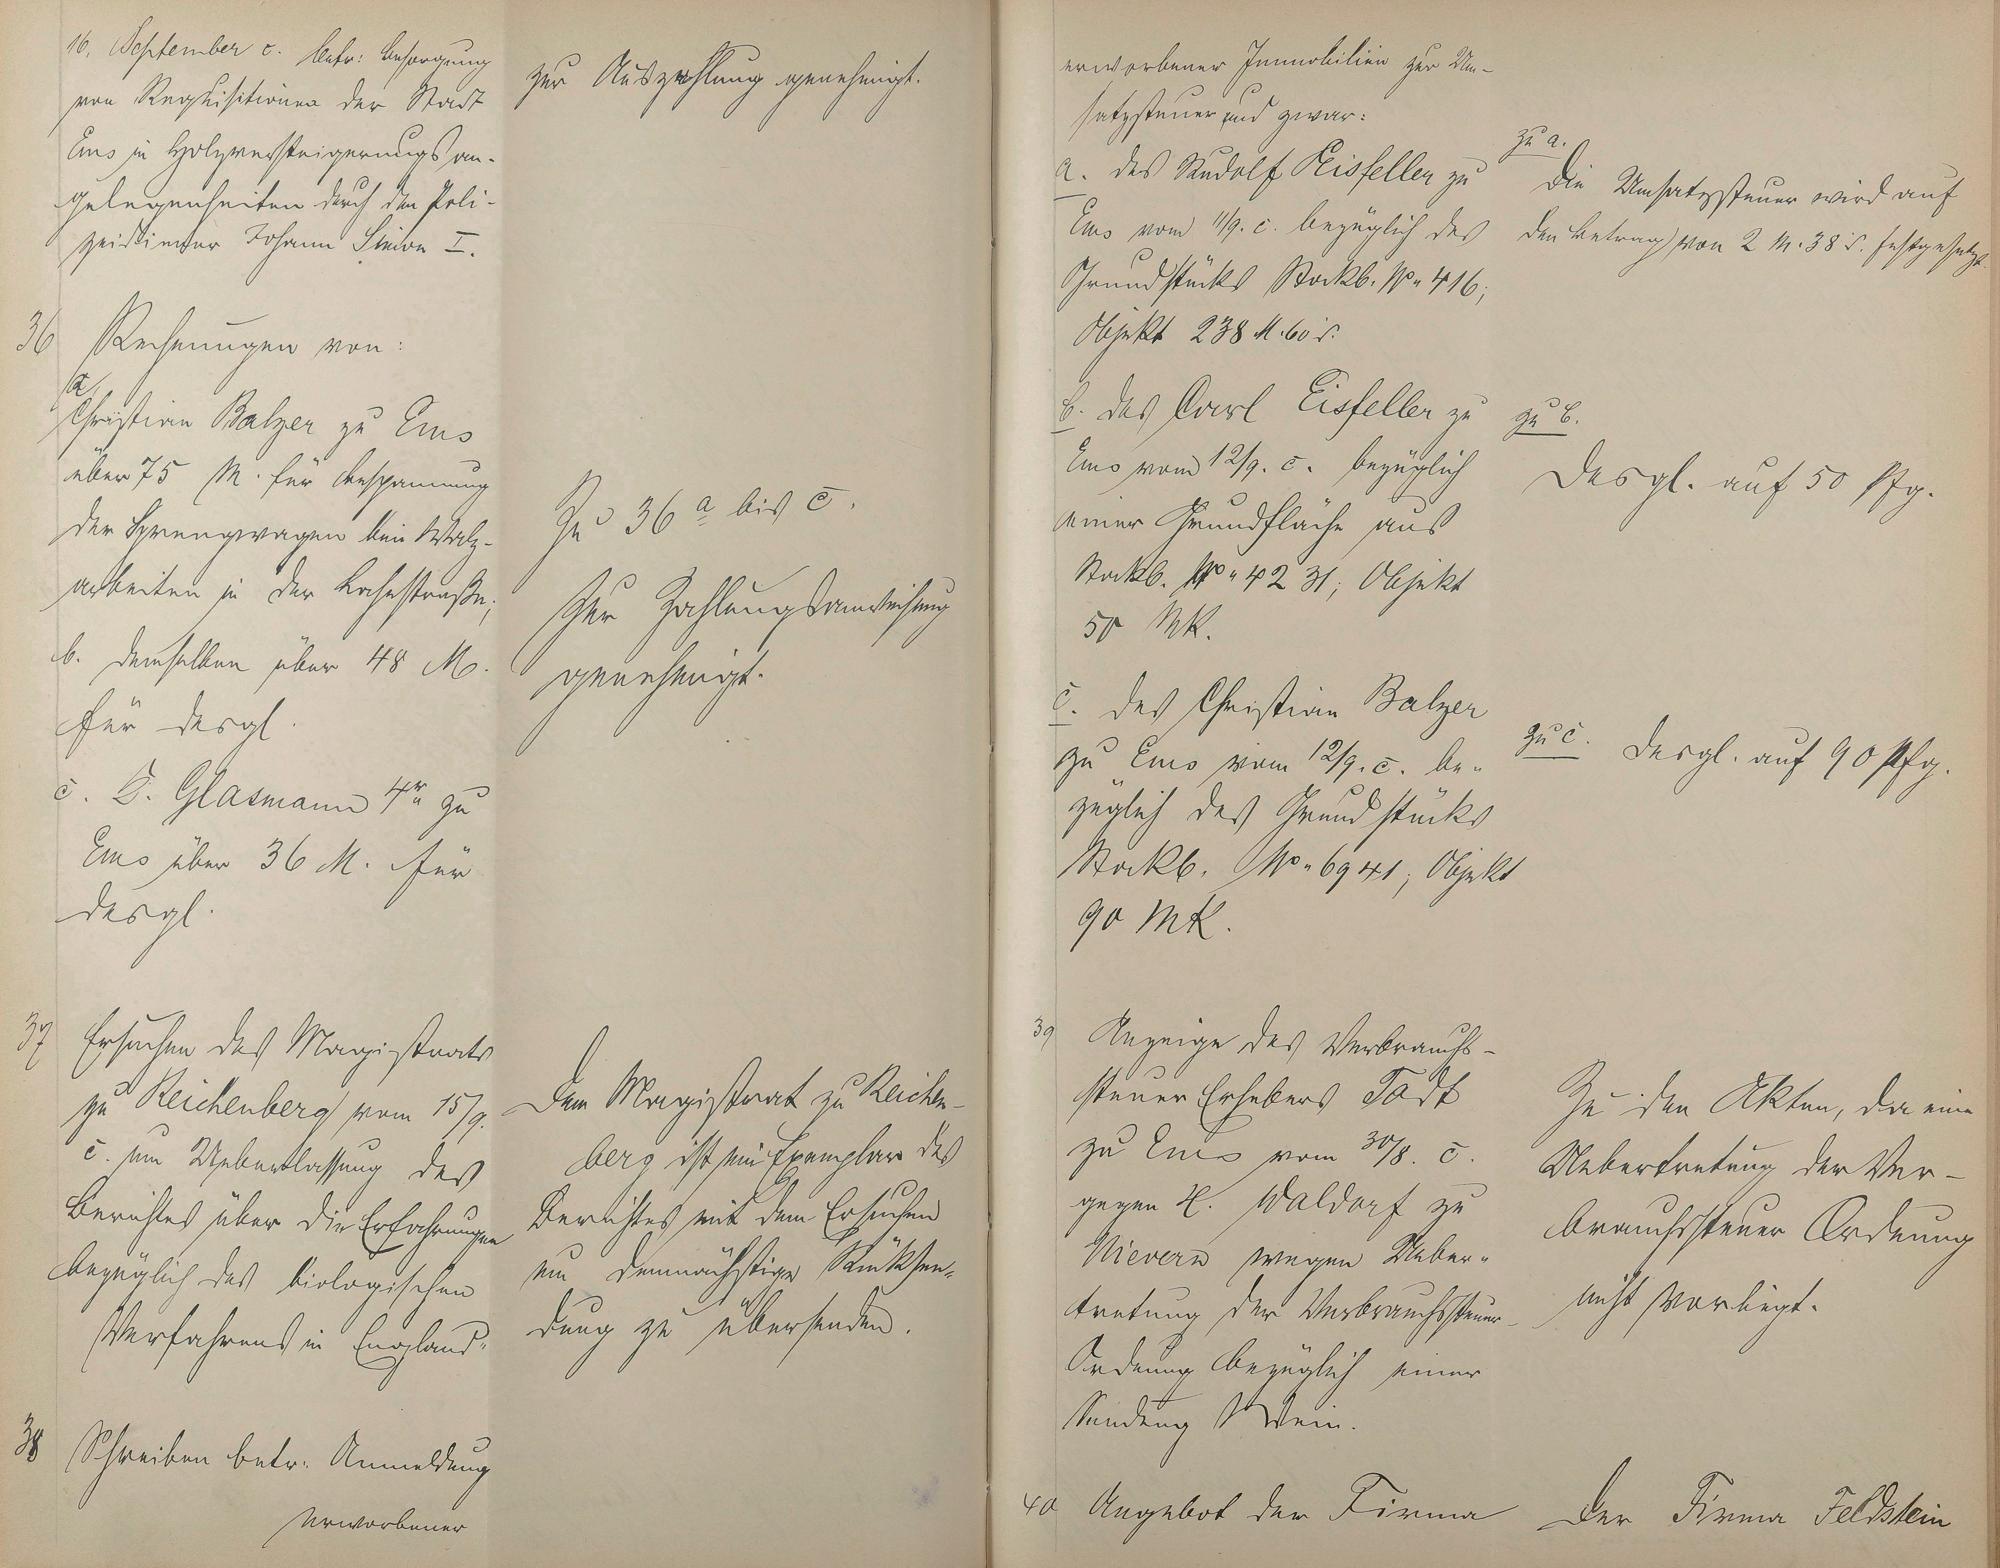 16. September c. betr: Besorgung
von Requisitionen der Stadt
Ems in Holzversteigerungsan-
gelegenheiten durch den Poli-
zeidiener Johann Simon I.
zur Auszahlung genehmigt.
36 Rechnungen von:
a
Christian Balzer zu Ems
über 75 M. für Bespannung
der Sprengwagen bei Walz-
arbeiten in der Bahnstraße;
b. demselben über 48 M.
für desgl.
c. D. Glasmann 4r zu
Ems über 36 M. für
desgl.
Zu 36 a bis c.
Zur Zahlungsanweisung
genehmigt.
37 Ersuchen des Magistrats
zu Reichenberg vom 15/9.
c. um Ueberlassung des
Berichtes über die Erfahrungen
bezüglich des biologischen
Verfahrens in England.
Dem Magistrat zu Reichen-
berg ist ein Exemplar des
Berichtes mit dem Ersuchen
um demnächstige Rücksen-
dung zu übersenden.
38 Schreiben betr. Anmeldung
erworbener
erworbener Immobilien zur Um-
satzsteuer und zwar:
a. des Rudolf Eisfeller zu
Ems vom 11/9. c. bezüglich des
Grundstücks Stockb. No 416;
Objekt 238 M. 60 .
zu a.
Die Umsatzsteuer wird auf
den Betrag von 2 M. 38 . festgesetzt.
b. des Carl Eisfeller zu
Ems vom 12/9. c. bezüglich
einer Grundfläche aus
Stockb. No 4231; Objekt
50 Mk.
zu b.
Desgl. auf 50 Pfg.
c. des Christian Balzer
zu Ems vom 12/9. c. be-
züglich des Grundstücks
Stockb. No 6941; Objekt
90 Mk.
zu c. Desgl. auf 90 Pfg.
39 Anzeige des Verbrauchs-
steuer Erhebers Todt
zu Ems vom 30/8. c.
gegen H. Waldorf zu
Nievern wegen Ueber-
tretung der Verbrauchssteuer-
Ordnung bezüglich einer
Sendung Wein.
Zu den Akten, da eine
Uebertretung der Ver-
brauchssteuer Ordnung
nicht vorliegt.
40 Angebot der Firma
Der Firma Feldstein